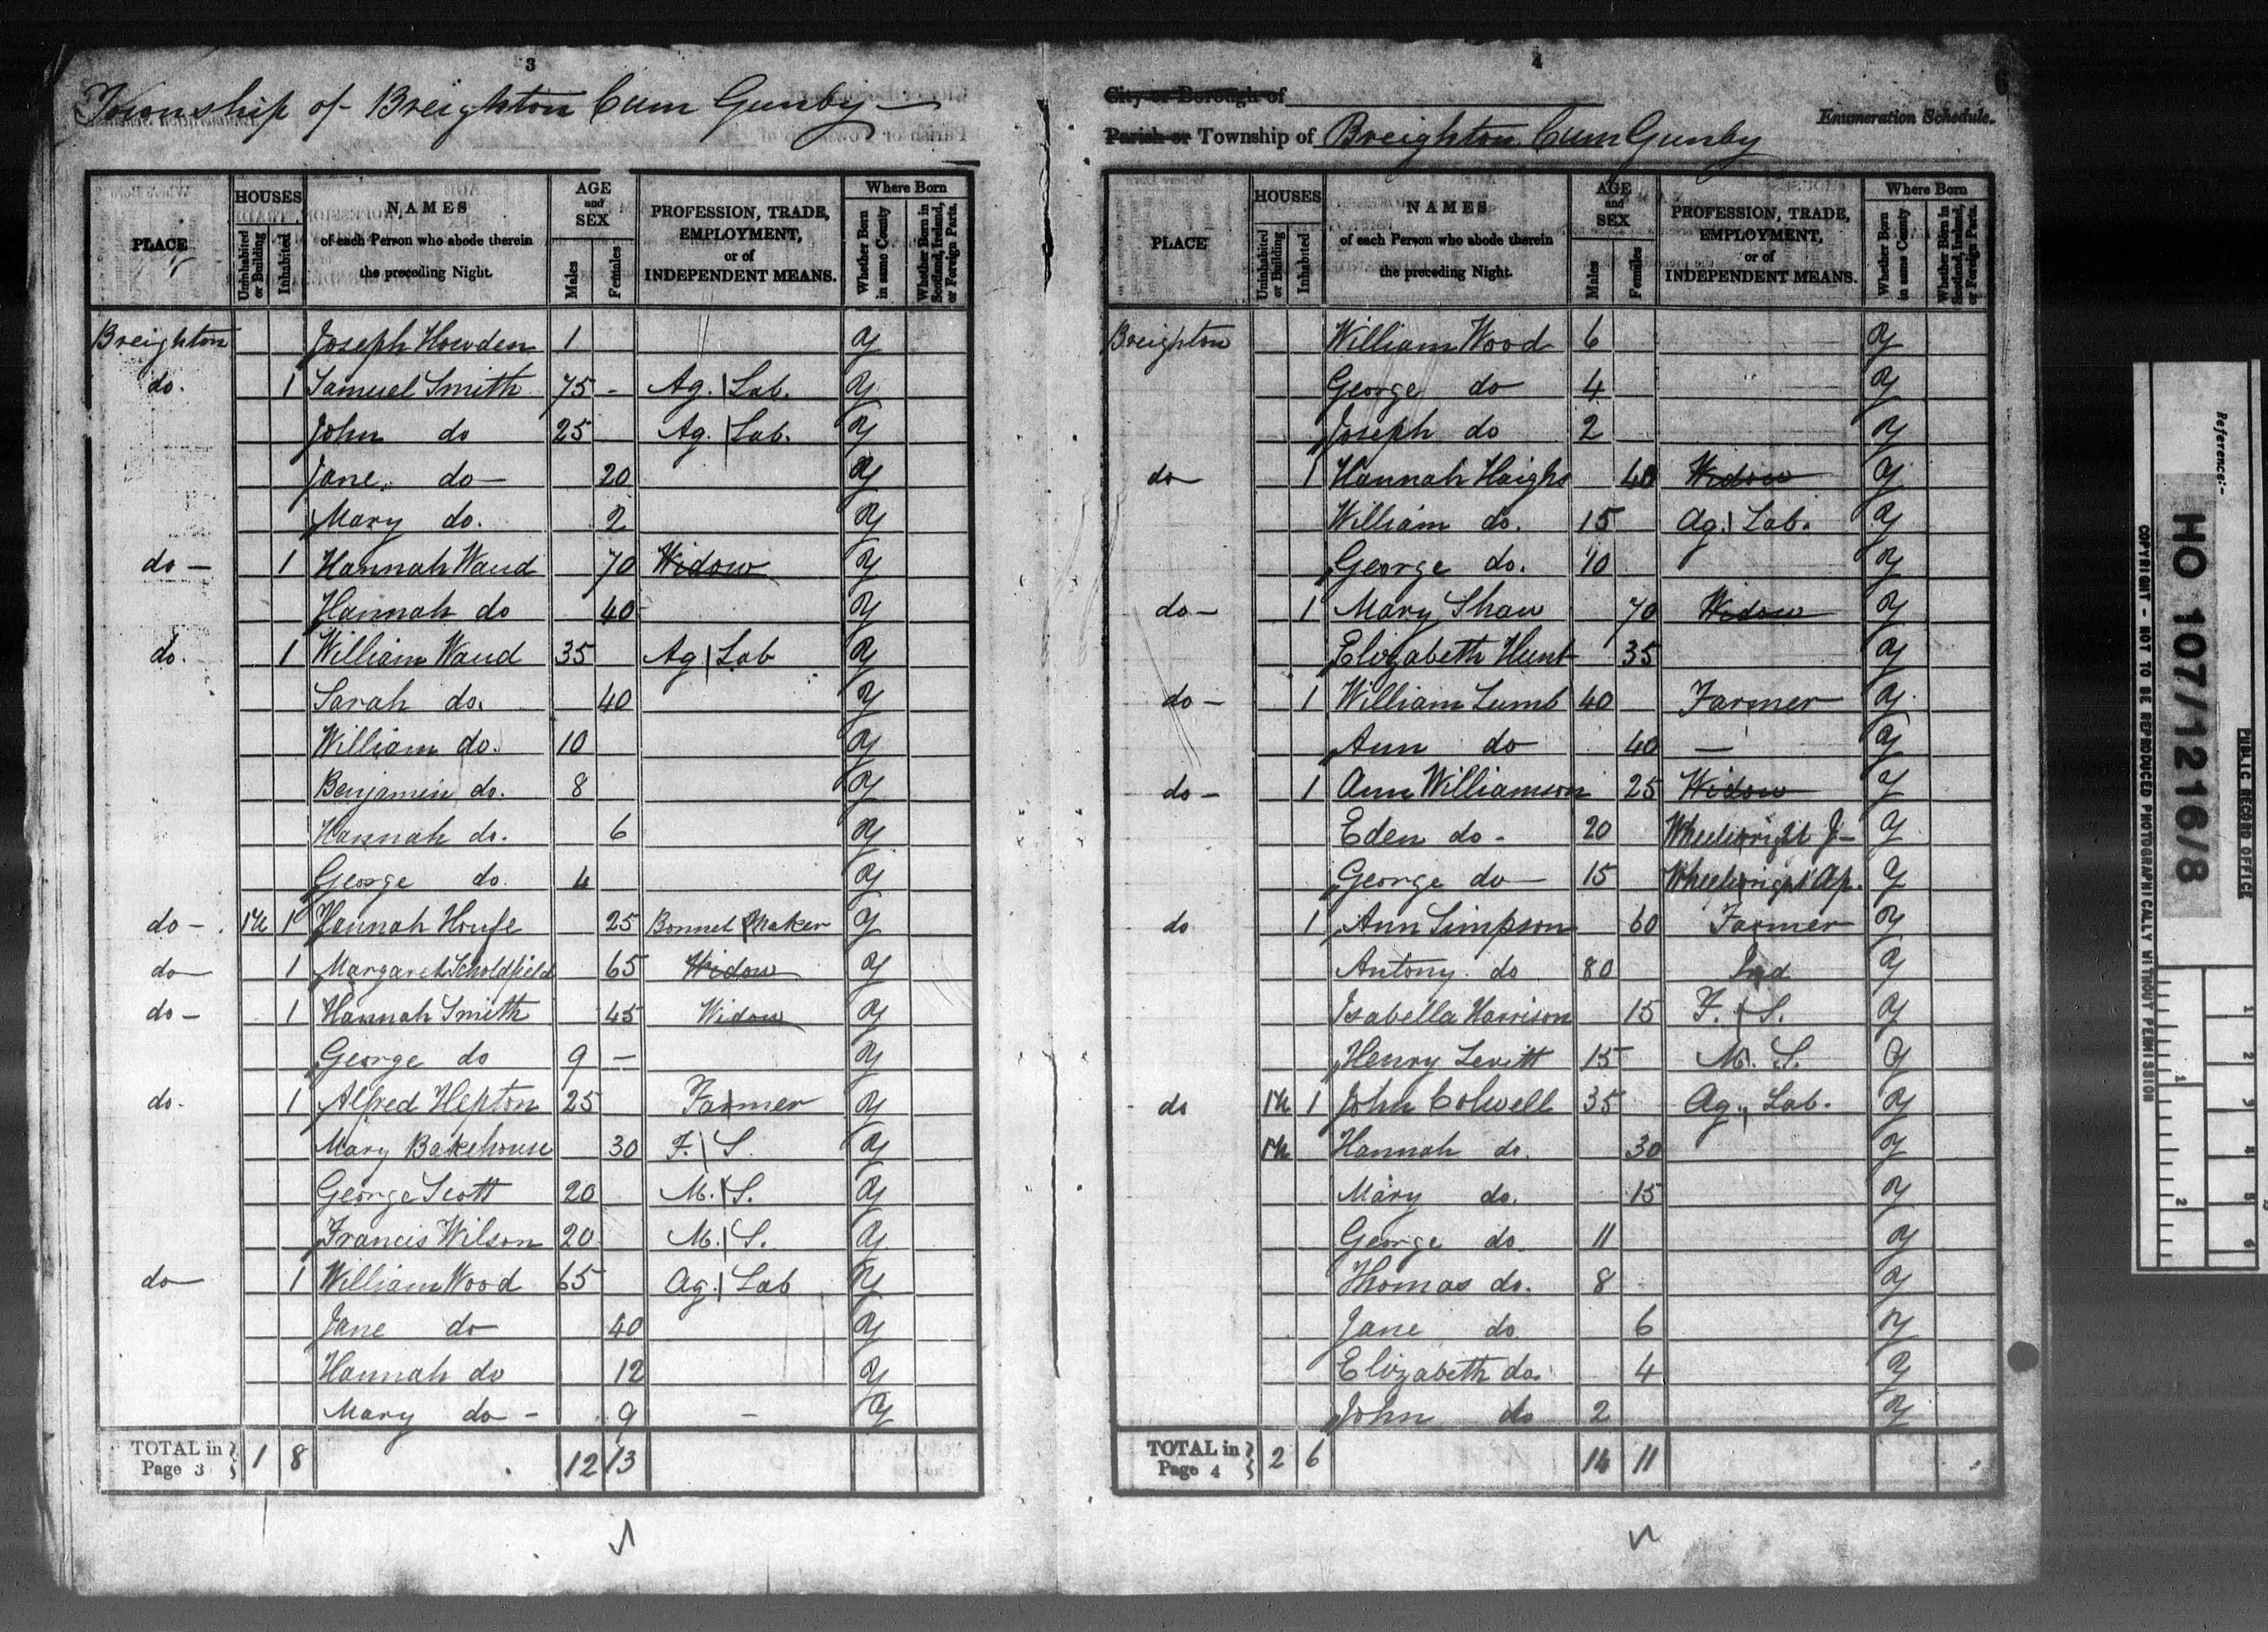 3
Township of Breighton Cum Gunby
PLACE
HOUSES
Uninhabited or Building
Inhabited
NAMES
of each Person who abode therein
the preceding Night.
AGE and SEX
Males
Females
PROFESSION, TRADE, EMPLOYMENT, or of INDEPENDENT MEANS.
Where Born
Whether Born in same County
Whether Born in Scotland, Ireland, or Foreign Parts.
Breighton Joseph Howden 1 y
do. 1 Samuel Smith 75 - Ag. Lab. y
John do 25 Ag. Lab. y
Jane do 20 y
Mary do. 2 y
do - 1 Hannah Waud 70 Widow y
Hannah do 40 y
do. 1 William Waud 35 Ag Lab y
Sarah do. 40 y
William do. 10 y
Benjamin do. 8 y
Hannah do. 6 y
George do. 4 y
do - 1U 1 Hannah Houfe 25 Bonnet Maker y
do 1 Margaret Scholdfield 65 Widow y
do - 1 Hannah Smith 45 Widow y
George do 9 - y
do. 1 Alfred Hepton 25 Farmer y
Mary Bakehouse 30 F. S. y
George Scott 20 M. S. y
Francis Wilson 20 M. S. y
do 1 William Wood 65 Ag. Lab y
Jane do 40 y
Hannah do 12 y
Mary do - 9 - y
TOTAL in Page 3 } 1 8 12 13
4
6
City or Borough of
Enumeration Schedule.
Parish or Township of Breighton Cum Gunby
PLACE
HOUSES
Uninhabited or Building
Inhabited
NAMES
of each Person who abode therein
the preceding Night.
AGE and SEX
Males
Females
PROFESSION, TRADE, EMPLOYMENT, or of INDEPENDENT MEANS.
Where Born
Whether Born in same County
Whether Born in Scotland, Ireland, or Foreign Parts.
Breighton William Wood 6 y
George do 4 y
Joseph do 2 y
do 1 Hannah Haighs 40 Widow y
William do. 15 Ag. Lab. y
George do. 10 y
do - 1 Mary Shaw 70 Widow y
Elizabeth Hunt 35 y
do - 1 William Lumb 40 Farmer y
Ann do 40 - y
do - 1 Ann Williamson 25 Widow y
Eden do - 20 Wheelwright J- y
George do 15 Wheelwright Ap. y
do 1 Ann Simpson 60 Farmer y
Antony do 80 Ind y
Isabella Harrison 15 F. S. y
Henry Levitt 15 M. S. y
do 1U 1 John Colwell 35 Ag. Lab. y
1U Hannah do. 30 y
Mary do. 15 y
George do. 11 y
Thomas do. 8 y
Jane do. 6 y
Elizabeth do. 4 y
John do 2 y
TOTAL in Page 4 } 2 6 14 11
Reference:-
HO 107/1216/8
PUBLIC RECORD OFFICE
COPYRIGHT - NOT TO BE REPRODUCED PHOTOGRAPHICALLY WITHOUT PERMISSION